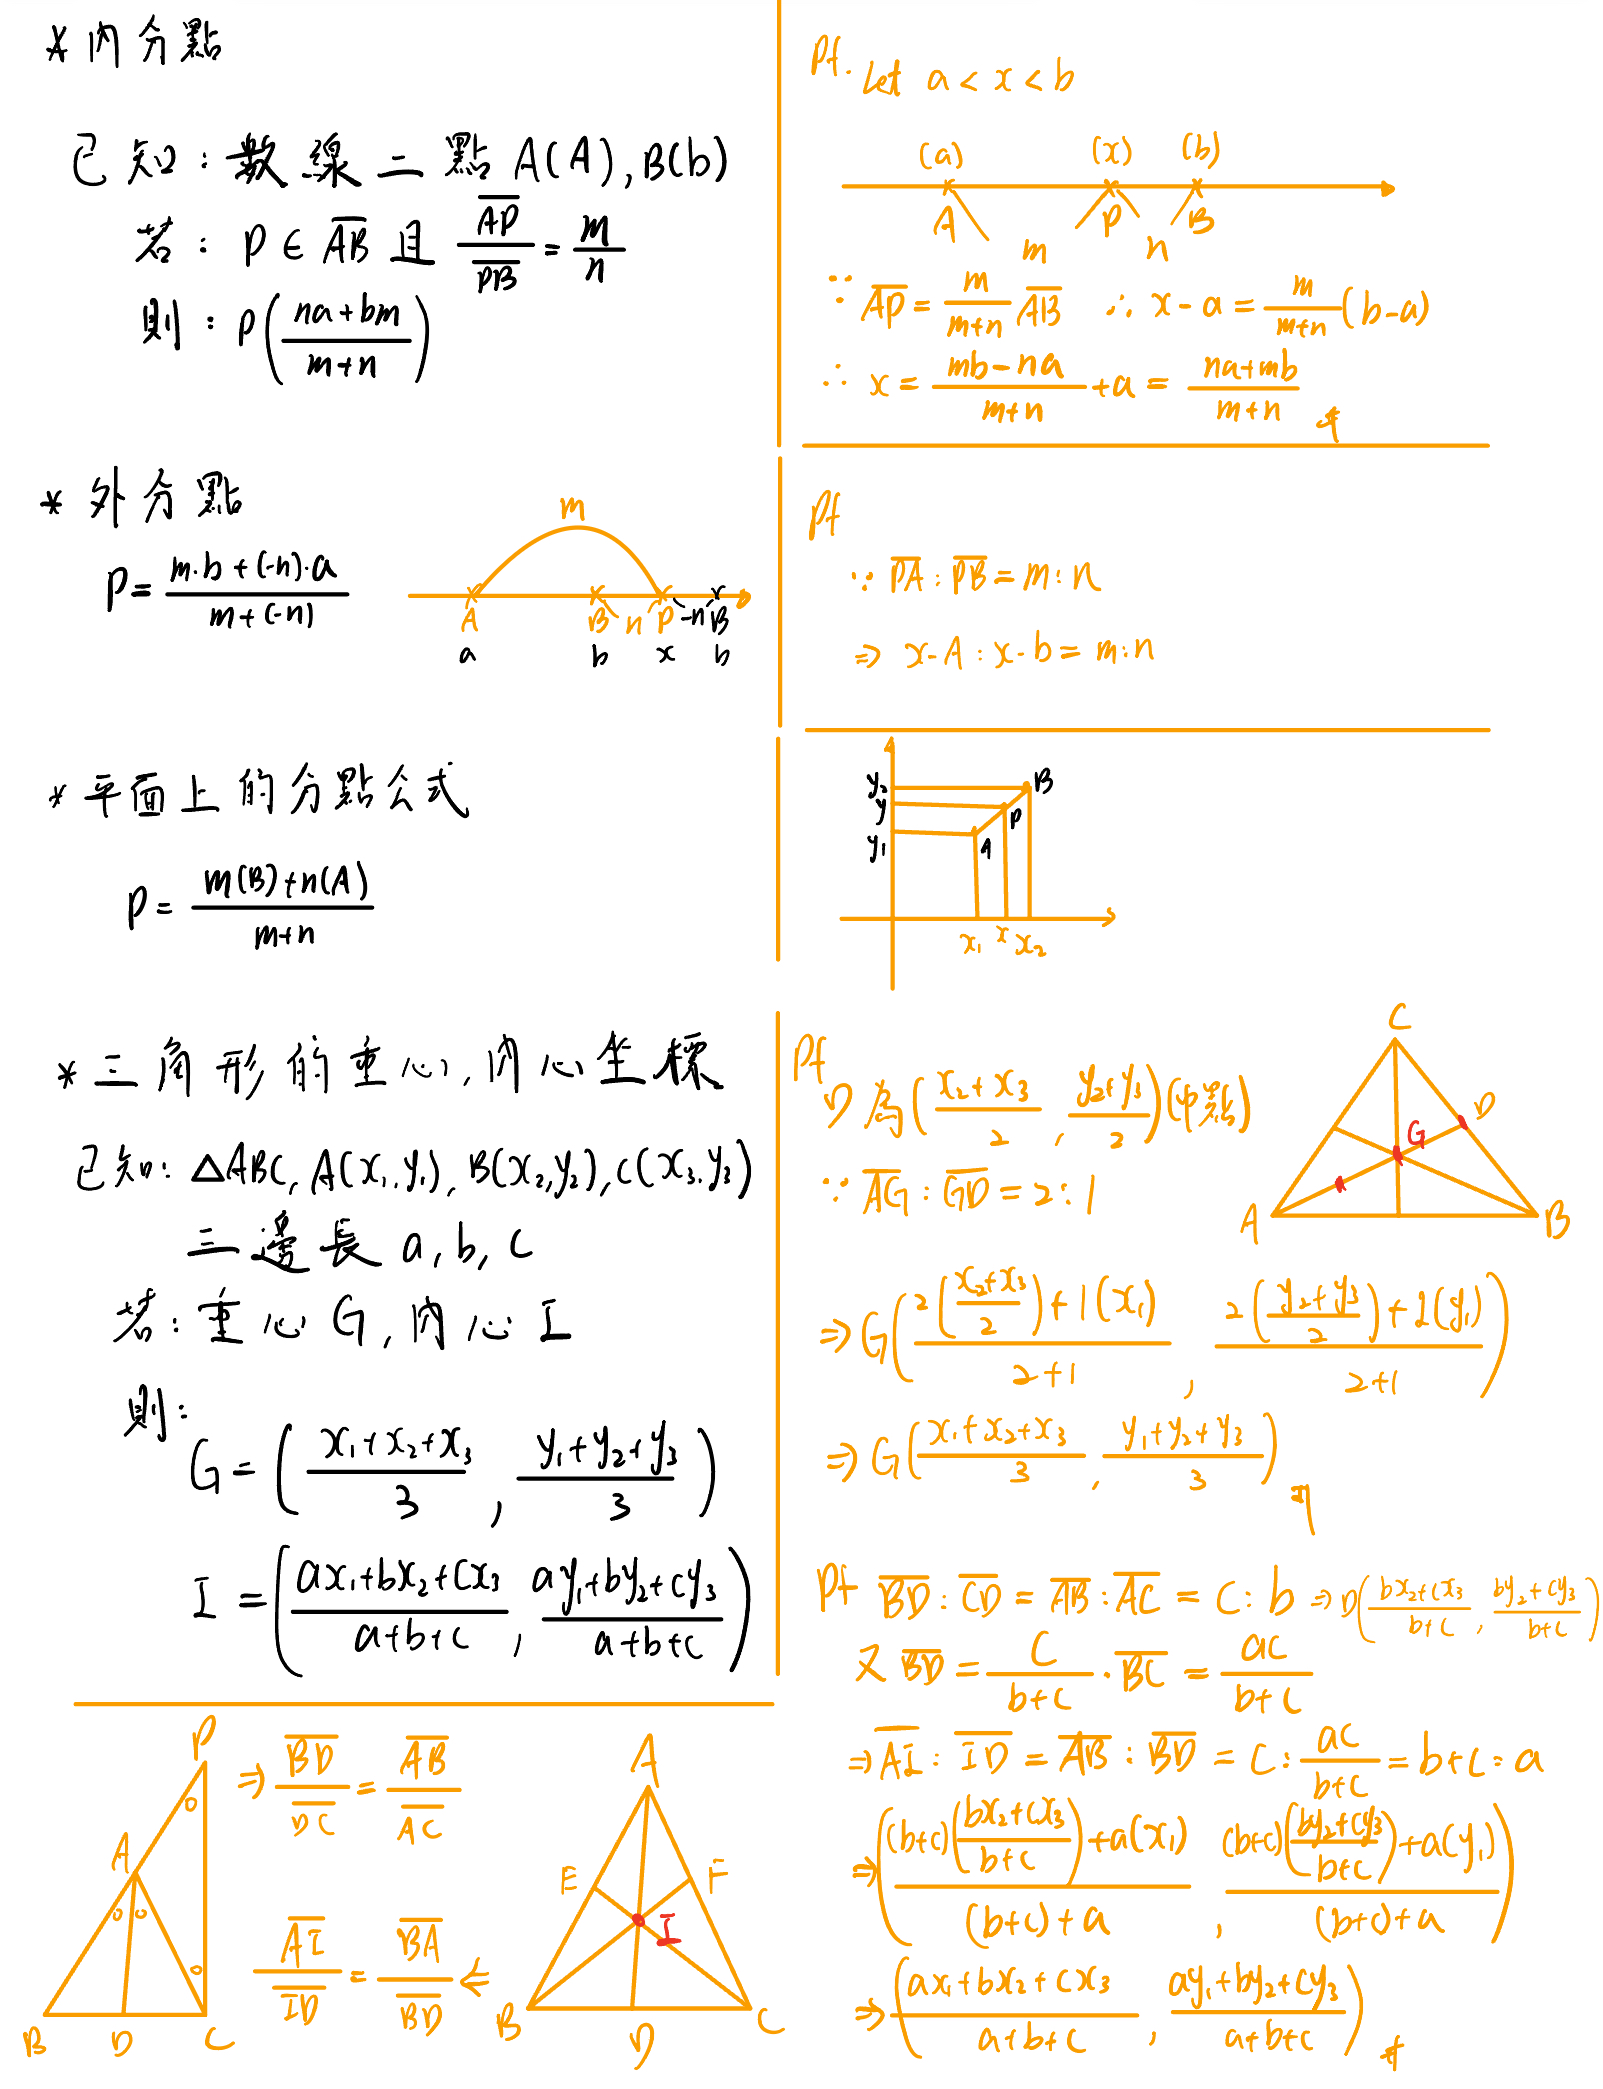 * 內分點
已知：數線二點 A(A), B(b)
若：P ∈ \overline{AB} 且 \frac{\overline{AP}}{\overline{PB}} = \frac{m}{n}
則：P(\frac{na+bm}{m+n})
Pf. Let a < x < b
(a) (x) (b)
A P B
m n
∵ \overline{AP} = \frac{m}{m+n} \overline{AB} ∴ x-a = \frac{m}{m+n}(b-a)
∴ x = \frac{mb-na}{m+n} + a = \frac{na+mb}{m+n}
* 外分點
P = \frac{m·b+(-n)·a}{m+(-n)}
m
A B n P -n B
a b x b
Pf
∵ \overline{PA} : \overline{PB} = m : n
⇒ x-A : x-b = m : n
* 平面上的分點公式
P = \frac{m(B)+n(A)}{m+n}
y₂ B
y P
y₁ A
x₁ x x₂
* 三角形的重心, 內心坐標
已知：△ABC, A(x₁,y₁), B(x₂,y₂), C(x₃,y₃)
三邊長 a, b, c
若：重心 G, 內心 I
則：
G = (\frac{x₁+x₂+x₃}{3}, \frac{y₁+y₂+y₃}{3})
I = (\frac{ax₁+bx₂+cx₃}{a+b+c}, \frac{ay₁+by₂+cy₃}{a+b+c})
Pf
D 為 (\frac{x₂+x₃}{2}, \frac{y₂+y₃}{2}) (中點)
∵ \overline{AG} : \overline{GD} = 2 : 1
C
D
G
A B
⇒ G(\frac{2(\frac{x₂+x₃}{2})+1(x₁)}{2+1}, \frac{2(\frac{y₂+y₃}{2})+1(y₁)}{2+1})
⇒ G(\frac{x₁+x₂+x₃}{3}, \frac{y₁+y₂+y₃}{3})
Pf \overline{BD} : \overline{CD} = \overline{AB} : \overline{AC} = c : b ⇒ D(\frac{bx₂+cx₃}{b+c}, \frac{by₂+cy₃}{b+c})
又 \overline{BD} = \frac{c}{b+c} · \overline{BC} = \frac{ac}{b+c}
⇒ \overline{AI} : \overline{ID} = \overline{AB} : \overline{BD} = c : \frac{ac}{b+c} = b+c : a
⇒ (\frac{(b+c)(\frac{bx₂+cx₃}{b+c})+a(x₁)}{(b+c)+a}, \frac{(b+c)(\frac{by₂+cy₃}{b+c})+a(y₁)}{(b+c)+a})
⇒ (\frac{ax₁+bx₂+cx₃}{a+b+c}, \frac{ay₁+by₂+cy₃}{a+b+c})
P
A
B D C
⇒ \frac{\overline{BD}}{\overline{DC}} = \frac{\overline{AB}}{\overline{AC}}
\frac{\overline{AI}}{\overline{ID}} = \frac{\overline{BA}}{\overline{BD}} ⇐
A
E F
I
B D C